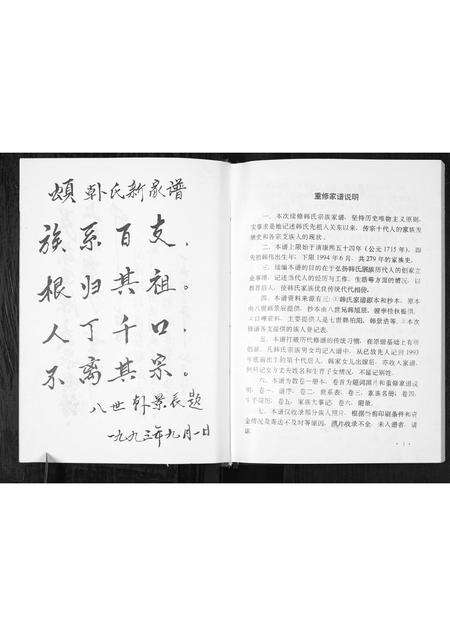 颂韩氏新家谱
族系百支，
根归其祖。
人丁千口，
不离其宗。
八世韩景辰题
一九九三年九月一日
重修家谱说明
一、本次续修韩氏宗族家谱，坚持历史唯物主义原则，
实事求是地记述韩氏先祖入关东以来，传宗十代人的家族发
展史和各宗支族人的现状。
二、本谱上限始于清康熙五十四年（公元1715年），四
先祖韩伟出生年，下限1994年6月，共279年的家族史。
三、续编本谱的目的在于弘扬韩氏族历代人的创家立
业事理，记述当代人的经历与工作、生活等方面的情况，以
教育后人，使韩氏家族优良传统代代相传。
四、本谱资料来源有三：①韩氏家谱原本和抄本，原本
由八世韩景辰提供，抄本由八世兄韩旭原、
人口碑资料，主要提供人是七世韩伯阳、韩景浩等。③本次
修谱各支提供的族人登记表。
五、本谱打破历修谱的传统习惯，在原谱基础上有所
创新。凡韩氏宗族男女均记入谱中，从已故先人记到1993
年底前出生的第十代后人。韩家女儿出嫁后，亦收入家谱，
但只记女方丈夫姓名和生育子女情况，不冠记别姓。
六、本谱为数卷一册本，卷首为题词照片和重修家谱说
明，卷一，谱序；卷二，世系表；卷三，家族名册；卷四，名
字生平谱；卷五，家族大事记；卷六，附录。
七、本谱仅收录部分族人照片，根据当前印刷条件和资
金情况及寄送不及时等原因，照片收录不全，未入谱者，请
谅